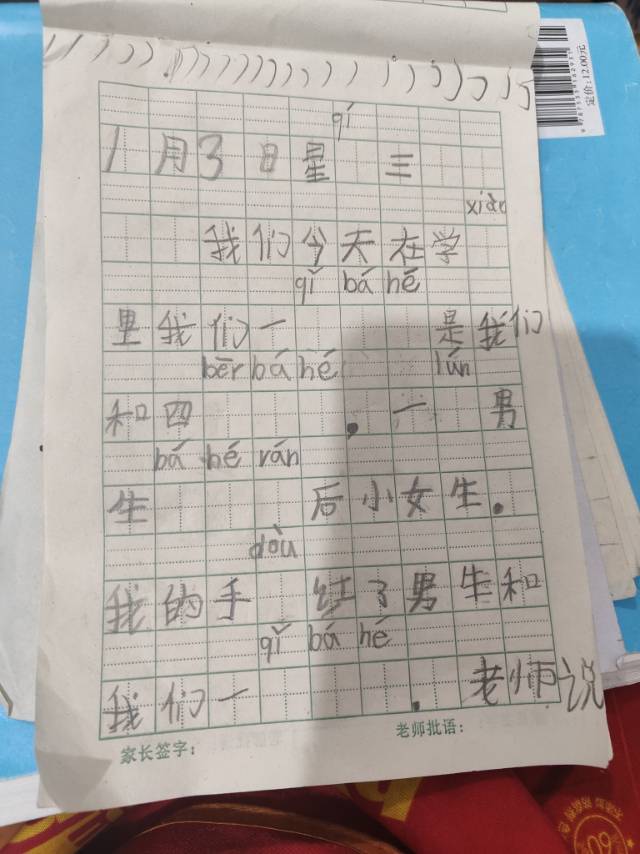 定价:12.00元
qí
1月3日星 三
xiào
我们今天在学
qǐ bá hé
里我们一 是我们
bēr bá hé lún
和四 . 一 男
bá hé rán
生 后小女生.
dòu
我的手 红了男生和
qǐ bá hé
我们一 . 老师说
家长签字: 老师批语: